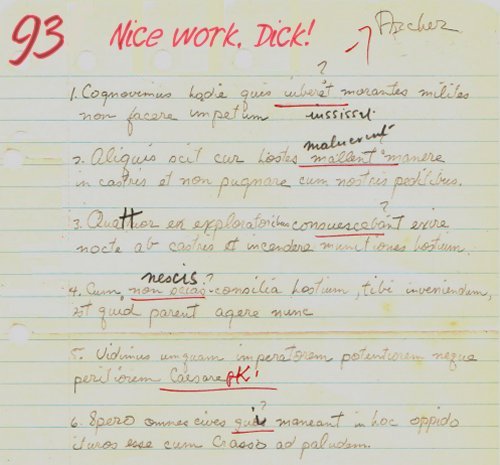 93 Nice work, Dick! Archer
?
1. Cognovimus hodie quis iuberet morantes milites
non facere impetum iussisset.
maluerint
2. Aliquis scit cur hostes mallent manere
in castris et non pugnare cum nostris peditibus.
?
3. Quattuor ex exploratoribus consuescebant exire
nocte ab castris et incendere munitiones hostium.
nescis ?
4. Cum non scias consilia hostium, tibi inveniendum,
est quid parent agere nunc
5. Vidimus umquam imperatorem potentiorem neque
peritiorem Caesare OK!
?
6. Spero omnes cives qui maneant in hoc oppido
ituros esse cum Crasso ad paludem.